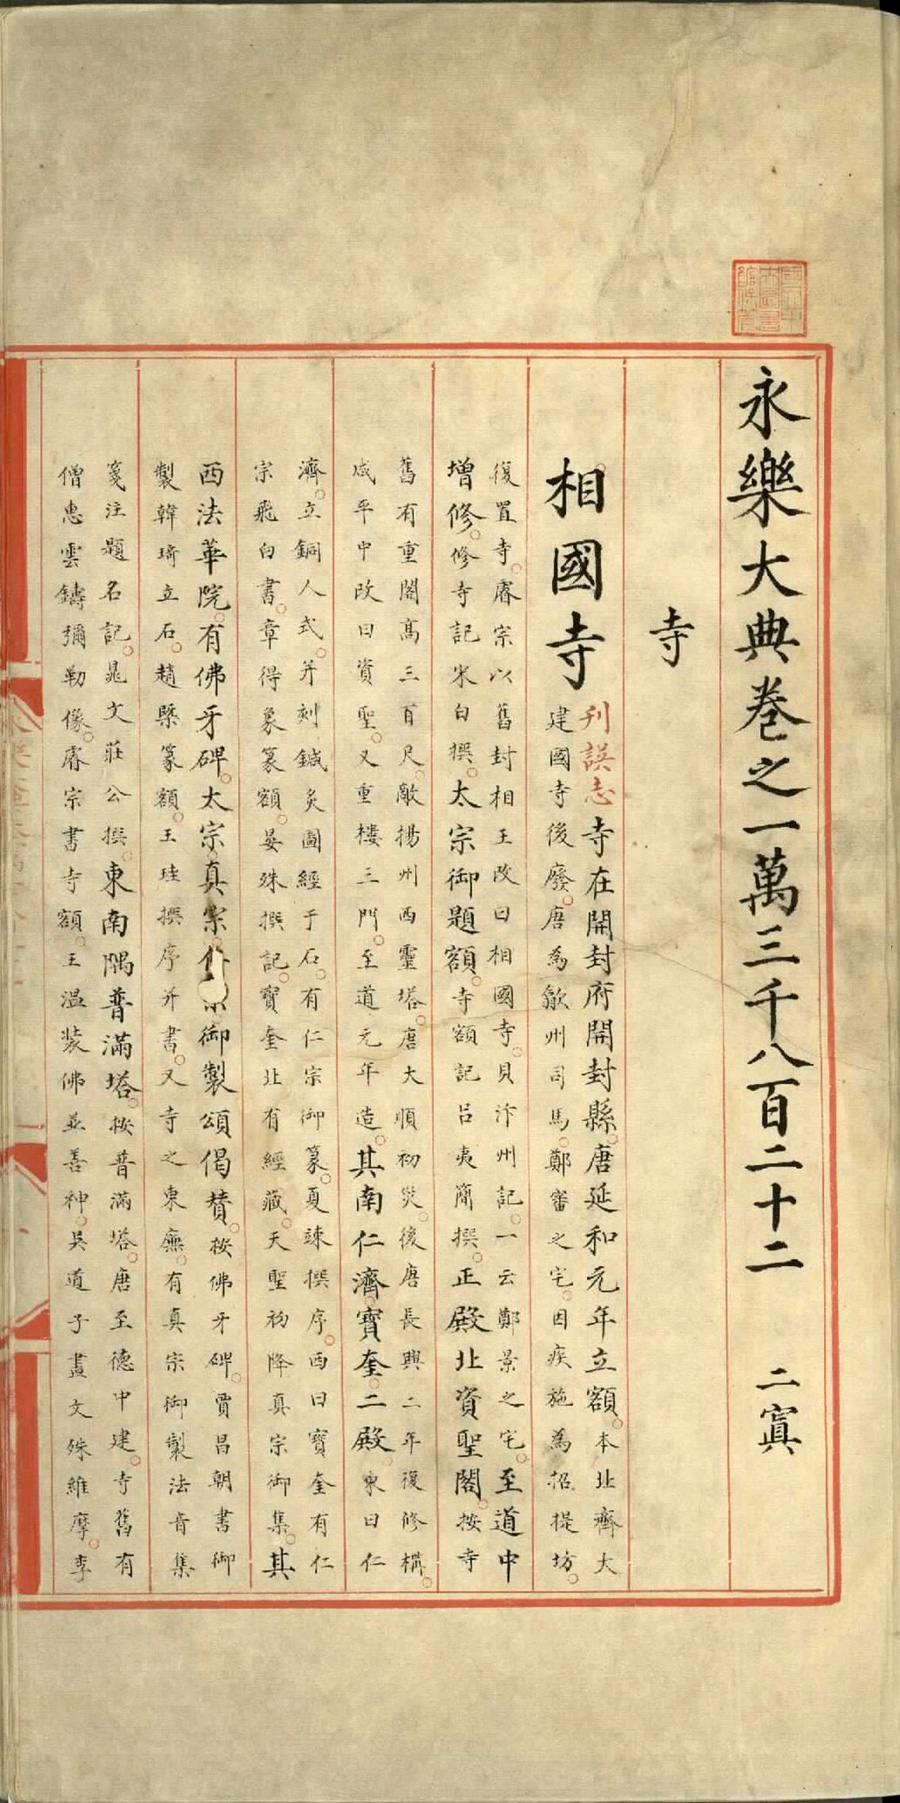 永樂大典卷之一萬三千八百二十二 二寘
寺
相國寺
刊誤志寺在開封府開封縣。唐延和元年立額。本北齊大
建國寺後廢。唐為歙州司馬。鄭審之宅。因疾施為招提坊。
復置寺。睿宗以舊封相王改曰相國寺。貝汴州記。一云鄭景之宅。至道中
增修。修寺記宋白撰。太宗御題額。寺額記呂夷簡撰。正殿北資聖閣。按寺
舊有重閣高三百尺。敵揚州西靈塔。唐大順初災。後唐長興二年復修構。
咸平中改曰資聖。又重樓三門。至道元年造。其南仁濟寶奎二殿。東曰仁
濟。立銅人式。并刻鍼灸圖經于石。有仁宗御篆。夏竦撰序。西曰寶奎有仁
宗飛白書。章得象篆額。晏殊撰記。寶奎北有經藏。天聖初降真宗御集。其
西法華院。有佛牙碑。太宗真宗御製頌偈贊。按佛牙碑。賈昌朝書御
製韓琦立石。趙槩篆額。王珪撰序并書。又寺之東廡。有真宗御製法音集
箋注題名記。晁文莊公撰。東南隅普滿塔。按普滿塔。唐至德中建。寺舊有
僧惠雲鑄彌勒像。睿宗書寺額。王溫裝佛並善神。吳道子畫文殊維摩。李